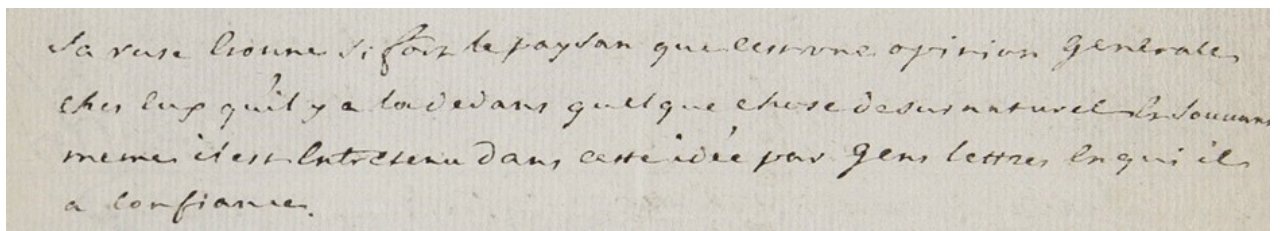 Sa ruse Etonne si fort le paysan que cest une opinion Generale
ches lux qu'il y a la dedans quelque chose de surnaturel Et Souvant
meme il est Entretenu dans cette idée par Gens lettres En qui il
a Confiance.